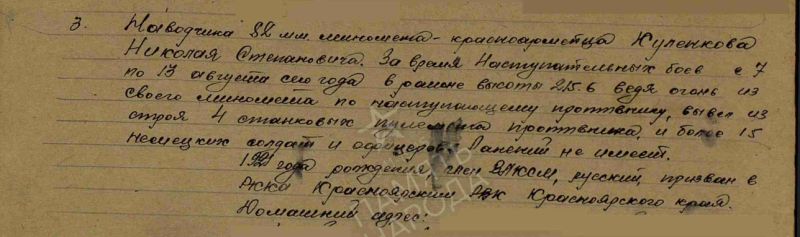 3. Наводчика 82 мм. миномета - красноармейца Куленкова
Николая Степановича. За время наступательных боев с 7
по 13 августа сего года в районе высоты 215.6 ведя огонь из
своего миномета по наступающему противнику, вывел из
строя 4 станковых пулемета противника, и более 15
немецких солдат и офицеров. Ранений не имеет.
года рождения, член ВЛКСМ, русский, призван в
РККА Красноярским РВК Красноярского края.
Домашний адрес:
ПАМЯТЬ
НАРОДА